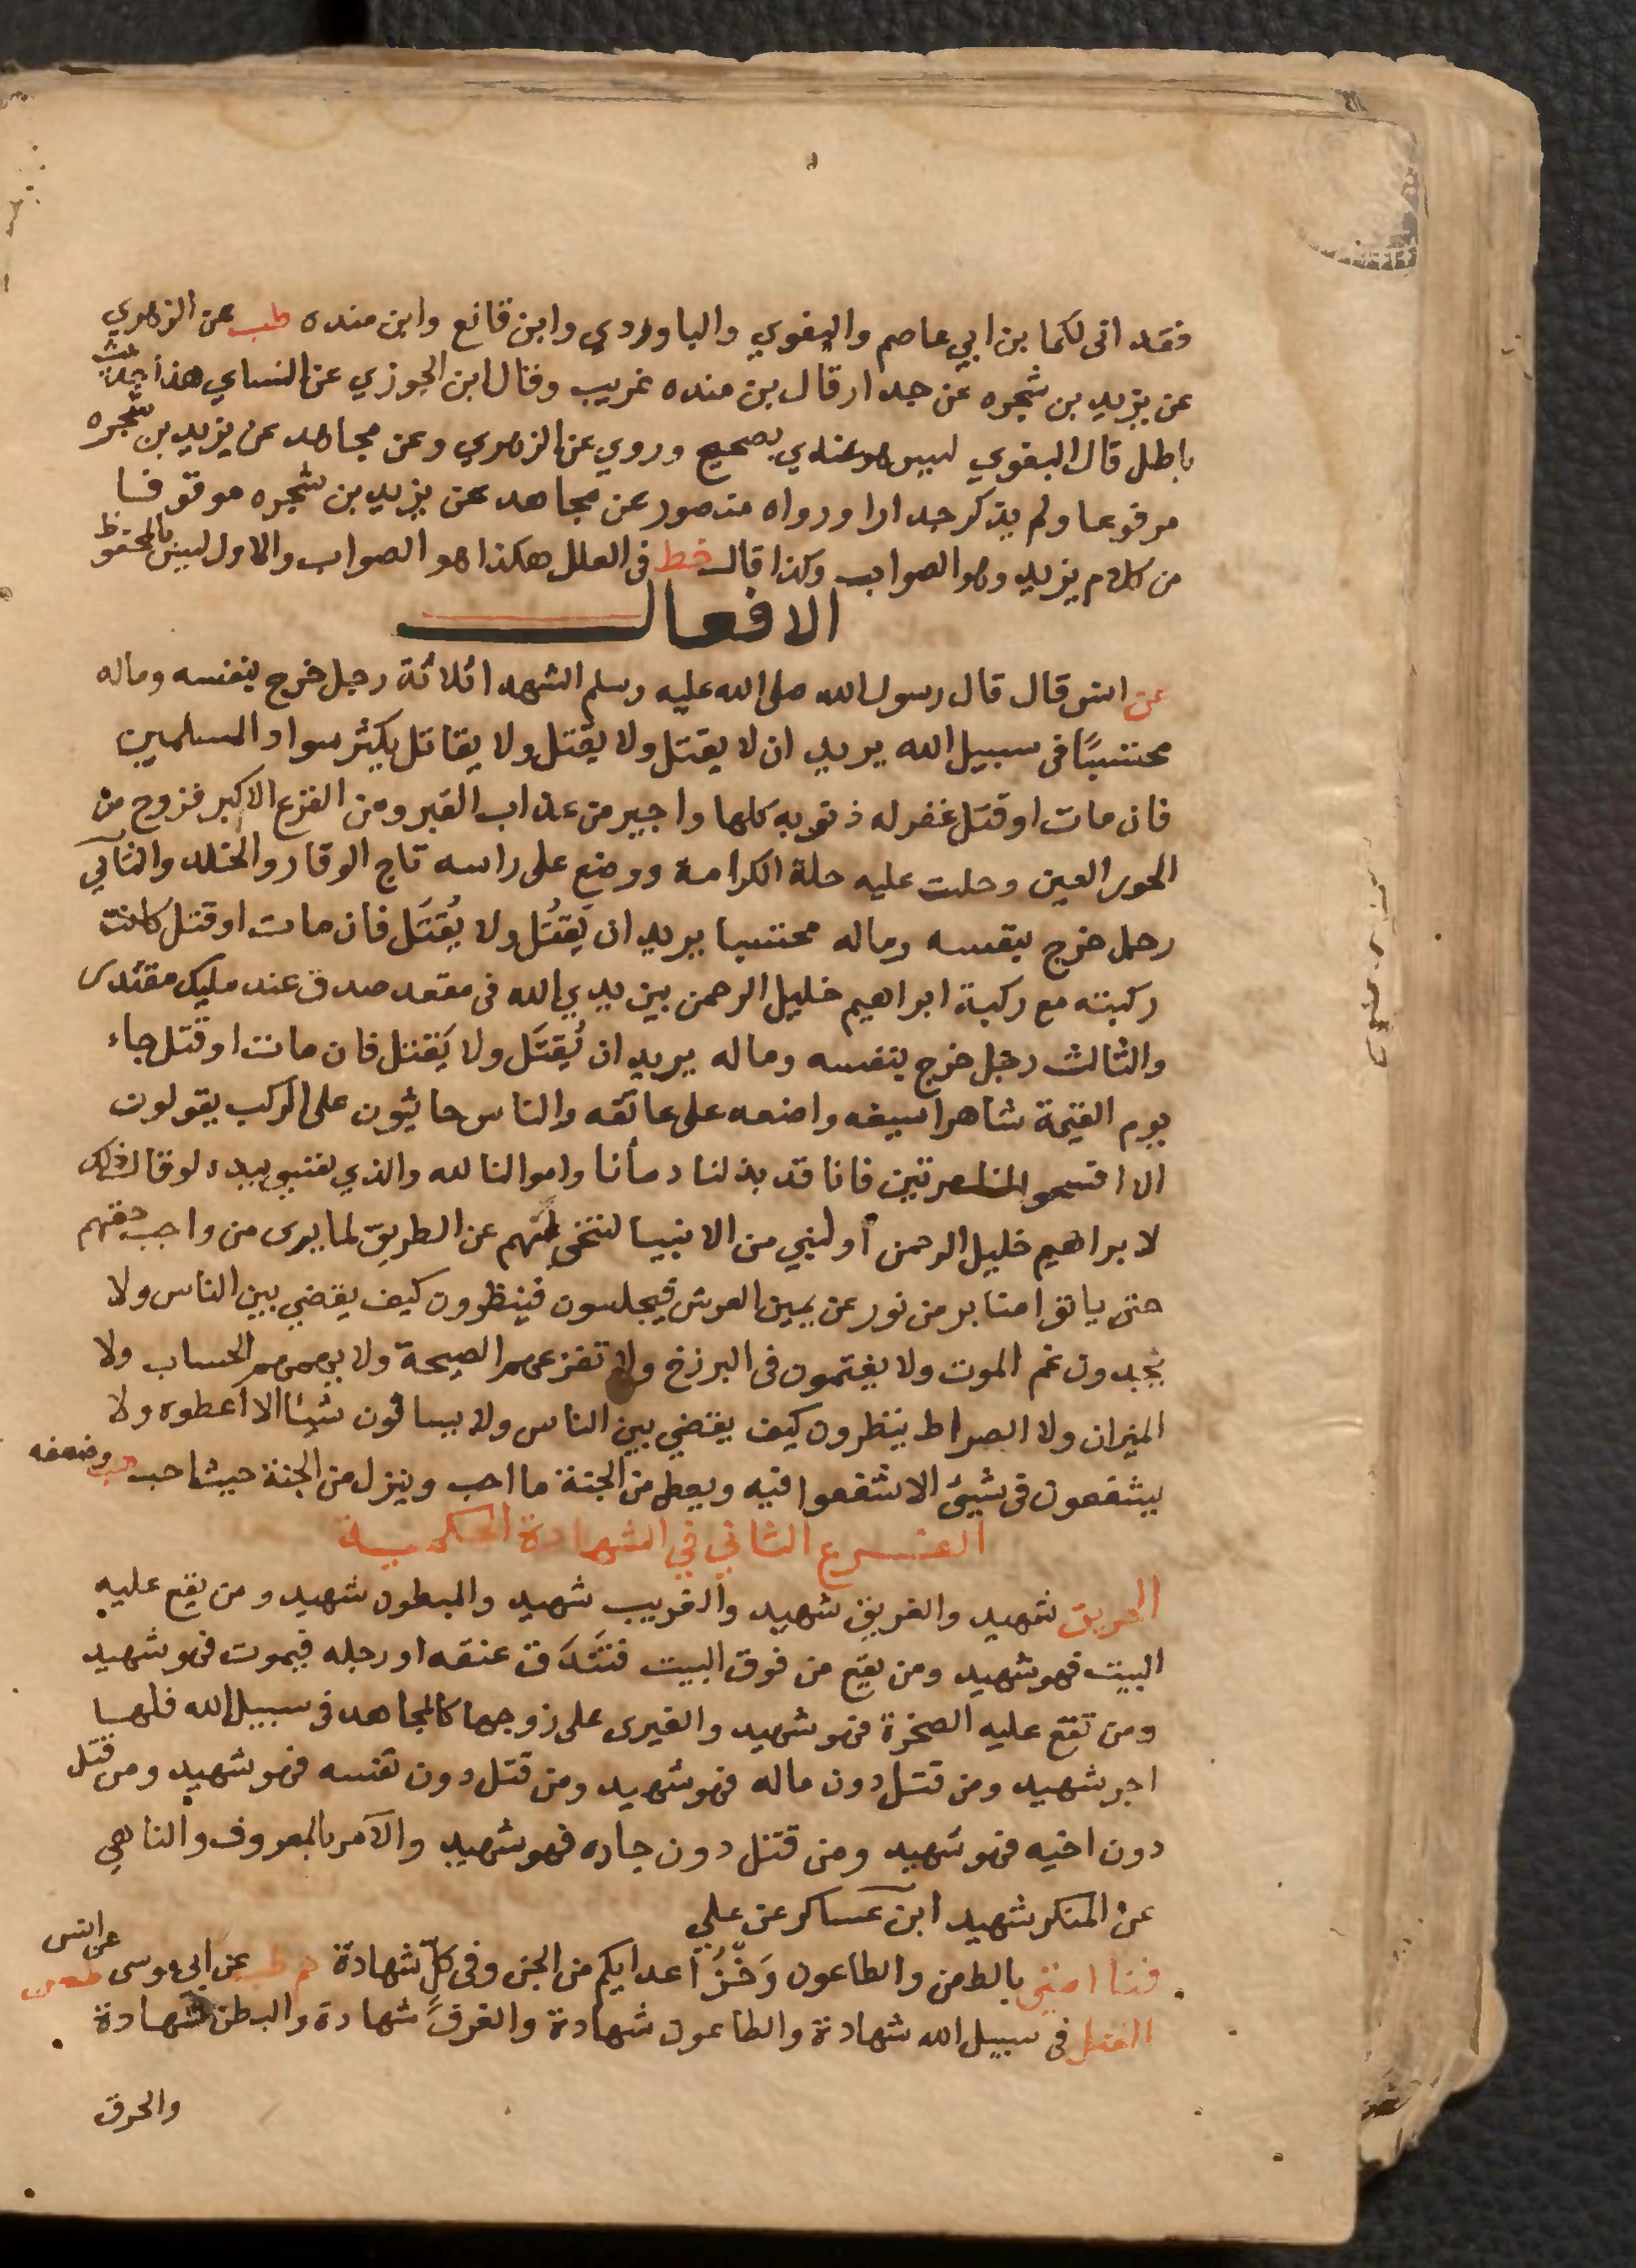 فقد انى لكما بن ابي عاصم والبغوي والباوردي وابن قانع وابن منده طب عن الزهري
عن يزيد بن شجره عن جدار قال بن منده غريب وقال ابن الجوزي عن النساي هذا حديث
باطل قال البغوي ليس هو عندي بصحيح وروي عن الزهري وعن مجاهد عن يزيد بن شجره
مرفوعا ولم يذكر جدارا ورواه منصور عن مجاهد عن يزيد بن شجره موقوفا
من كلام يزيد وهو الصواب وكذا قال خط فى العلل هكذا هو الصواب والاول ليس بالمحفوظ
الافعال
عن انس قال قال رسول الله صلى الله عليه وسلم الشهدا ثلاثة رجل خرج بنفسه وماله
محتسبًا فى سبيل الله يريد ان لا يقتل ولا يقتل ولا يقاتل يكثر سواد المسلمين
فان مات او قتل غفر له ذنوبه كلها واجير من عذاب القبر ومن الفزع الاكبر فزوج من
الحور العين وحلت عليه حلة الكرامة ووضع على راسه تاج الوقار والخلد والثاني
رجل خرج بنفسه وماله محتسبا يريد ان يَقتُل ولا يُقتَل فان مات او قتل كانت
ركبته مع ركبة ابراهيم خليل الرحمن بين يدي الله فى مقعد صدق عند مليك مقتدر
والثالث رجل خرج بنفسه وماله يريد ان يُقتَل ولا يَقتل فان مات او قتل جاء
يوم القيمة شاهرا سيفه واضعه على عاتقه والناس جاثيون على الركب يقولون
الا افسحوا لنا مرتين فانا قد بذلنا دمأنا واموالنا لله والذي نفسي بيده لو قال ذلك
لابراهيم خليل الرحمن أو لنبي من الانبيا لتنحى لهم عن الطريق لما يرى من واجب حقهم
حتى ياتوا منابر من نور عن يمين العرش فيجلسون فينظرون كيف يقضي بين الناس ولا
يجدون غم الموت ولا يغتمون فى البرزخ ولا تفزعهم الصيحة ولا يهمهم الحساب ولا
الميزان ولا الصراط ينظرون كيف يقضي بين الناس ولا يسالون شيئا الا أعطوه ولا
يشفعون فى شيئ الا شفعوا فيه ويعطى من الجنة ما احب وينزل من الجنة حيث احب هب وضعفه
الفرع الثاني في الشهادة الحكمية
الحريق شهيد والغريق شهيد والغريب شهيد والمبطون شهيد ومن يقع عليه
البيت فهو شهيد ومن يقع من فوق البيت فتَندَق عنقه او رجله فيموت فهو شهيد
ومن تقع عليه الصخرة فهو شهيد والغيرى على زوجها كالمجاهد فى سبيل الله فلها
اجر شهيد ومن قتل دون ماله فهو شهيد ومن قتل دون نفسه فهو شهيد ومن قتل
دون اخيه فهو شهيد ومن قتل دون جاره فهو شهيد والآمر بالمعروف والناهي
عن المنكر شهيد ابن عساكر عن علي
فنا امتي بالطعن والطاعون وَخْزُ أعدايكم من الجن وفى كلٍّ شهادة حم طب عن ابى موسى طس
عن انس
القتل فى سبيل الله شهادة والطاعون شهادة والغرق شهادة والبطن شهادة
والحرق